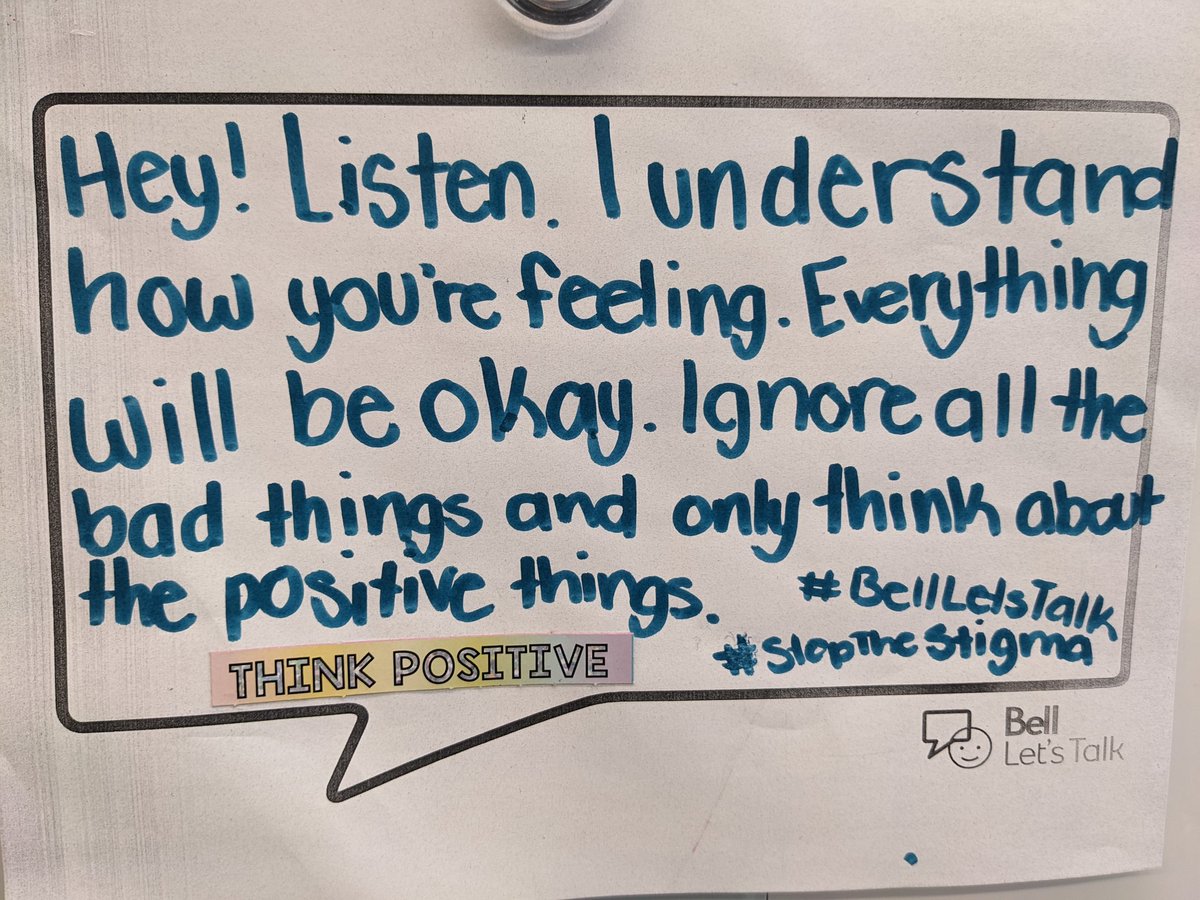 Hey! Listen. I understand
how you're feeling. Everything
will be okay. Ignore all the
bad things and only think about
the positive things.
#BellLetsTalk
#StopTheStigma
THINK POSITIVE
Bell
Let's Talk